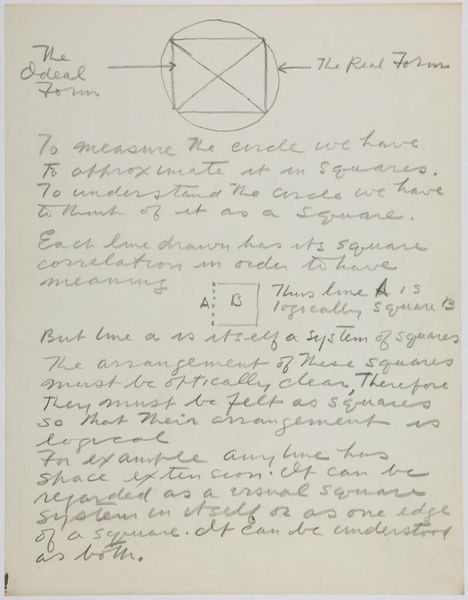 The
Ideal
Form
The Real Form
To measure the circle we have
to approximate it in squares.
To understand the circle we have
to think of it as a square.
Each line drawn has its square
correlation in order to have
meaning
A B Thus line A is
logically square B
But line a is itself a system of squares
The arrangement of these squares
must be optically clear, Therefore
they must be felt as squares
so that their arrangement is
logical
For example any line has
space extension. It can be
regarded as a visual square
system in itself or as one edge
of a square. It can be understood
as both.